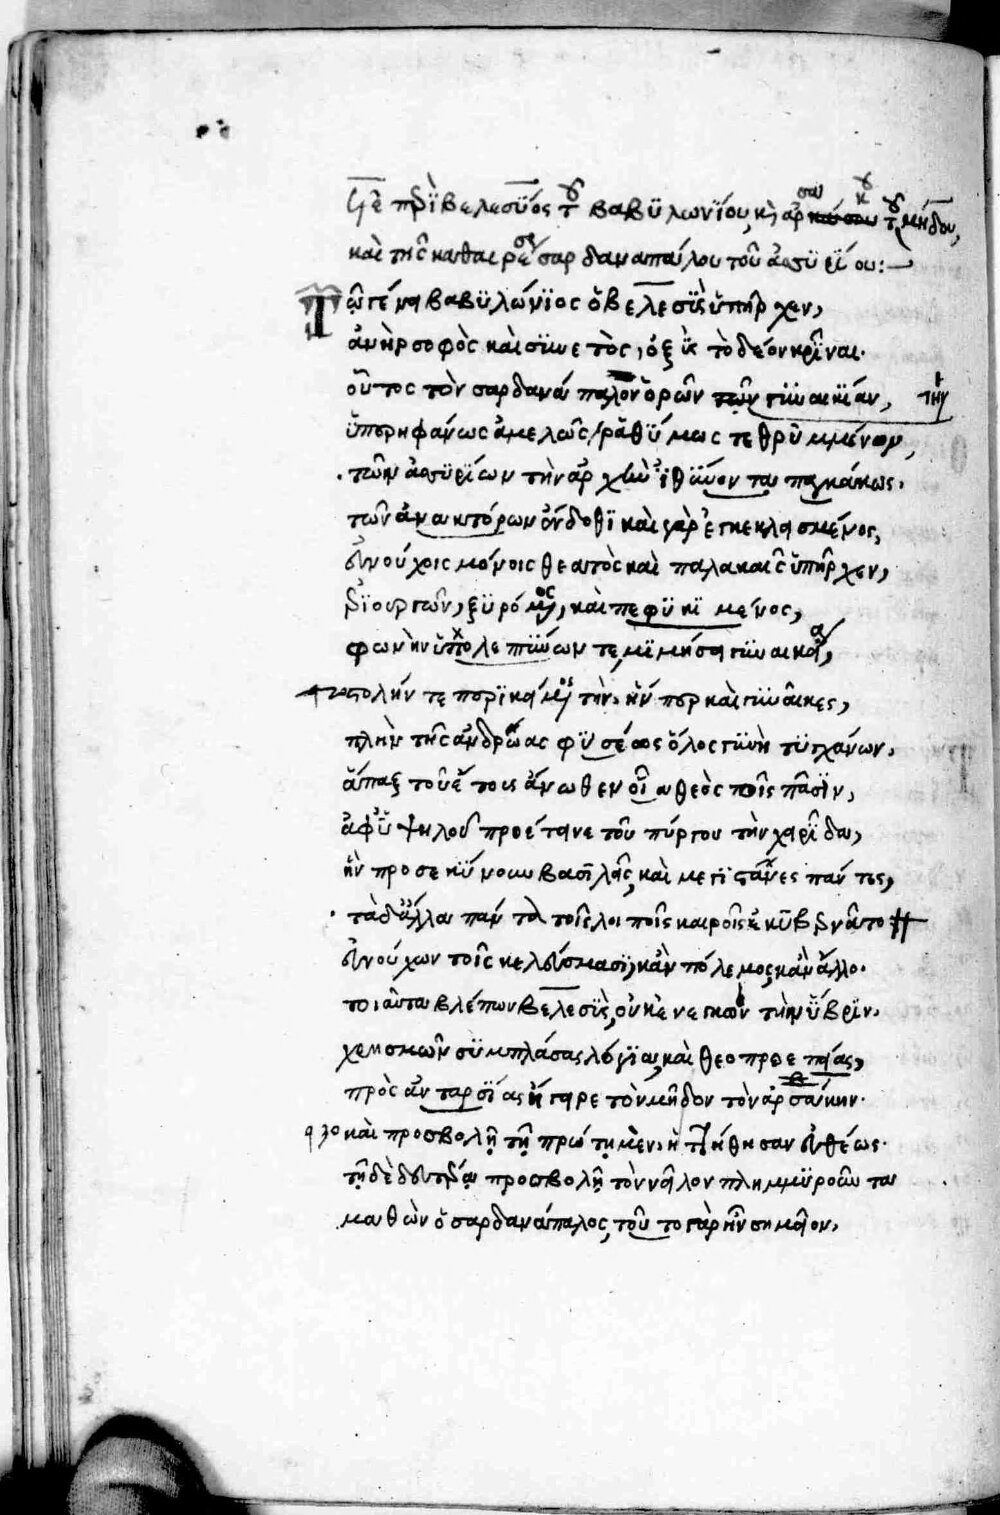 περὶ Βελεσύος τοῦ Βαβυλωνίου, καὶ ἀρσάκου τοῦ μήδου,
καὶ τῆς καθαιρέσεως σαρδαναπάλου τοῦ ἀσσυρίου:
Τῷ γένει βαβυλώνιος ὁ βελεσὺς ὑπῆρχεν,
ἀνὴρ σοφὸς καὶ συνετὸς, ὀξὺς τὸ δέον κρῖναι.
οὗτος τὸν σαρδανάπαλον ὁρῶν τὴν γυναικίαν,
ὑπερηφάνως ἀμελῶς, ῥαθύμως τεθρυμμένον,
τῶν ἀσσυρίων τὴν ἀρχὴν ἰθύνοντα παγκάκως.
τῶν ἀνακτόρων ἔνδοθι καὶ γὰρ ἐγκεκλεισμένος,
εὐνούχοις μόνοις θεατὸς καὶ παλακαῖς ὑπῆρχεν,
ξυρόμενος, καὶ πεφυκιμένος,
φωνὴν ὑπολεπτύων τε, μιμήσει γυναικεία,
στολήν τε περικείμενος τὴν, ἥν περ καὶ γυναῖκες,
πλὴν τῆς ἀνδρώας φύσεως ὅλος γυνὴ τυγχάνων,
ἅπαξ τοῦ ἔτους ἄνωθεν οἷα θεὸς τοῖς πᾶσιν,
ἀφ' ὑψηλοῦ προέτεινε τοῦ πύργου τὴν χεῖρίδα,
ἣν προσεκύνουν βασιλεῖς, καὶ μεγιστᾶνες πάντες,
τὰ δ' ἄλλα πάντα τοῖς λοιποῖς καιροῖς ἐκυβερνᾶτο
εὐνούχων τοῖς κελεύσμασι, κἂν πόλεμος, κἂν ἄλλο.
τοιαῦτα βλέπων βελεσὺς, οὐκ ἐνεγκὼν τὴν ὕβριν,
χρησμῶν συμπλάσας λόγια, καὶ θεοπροπίας,
πρὸς ἀνταρσίας ἤγειρε τὸν μῆδον τὸν ἀρσάκην.
καὶ προσβολῇ τῇ πρώτῃ μὲν, ἡττήθησαν εὐθέως.
τῇ δὲ δευτέρᾳ προσβολῇ τὸν νεῖλον πλημμυροῦντα
μαθὼν ὁ σαρδανάπαλος, τοῦτο γὰρ ἦν σημεῖον,